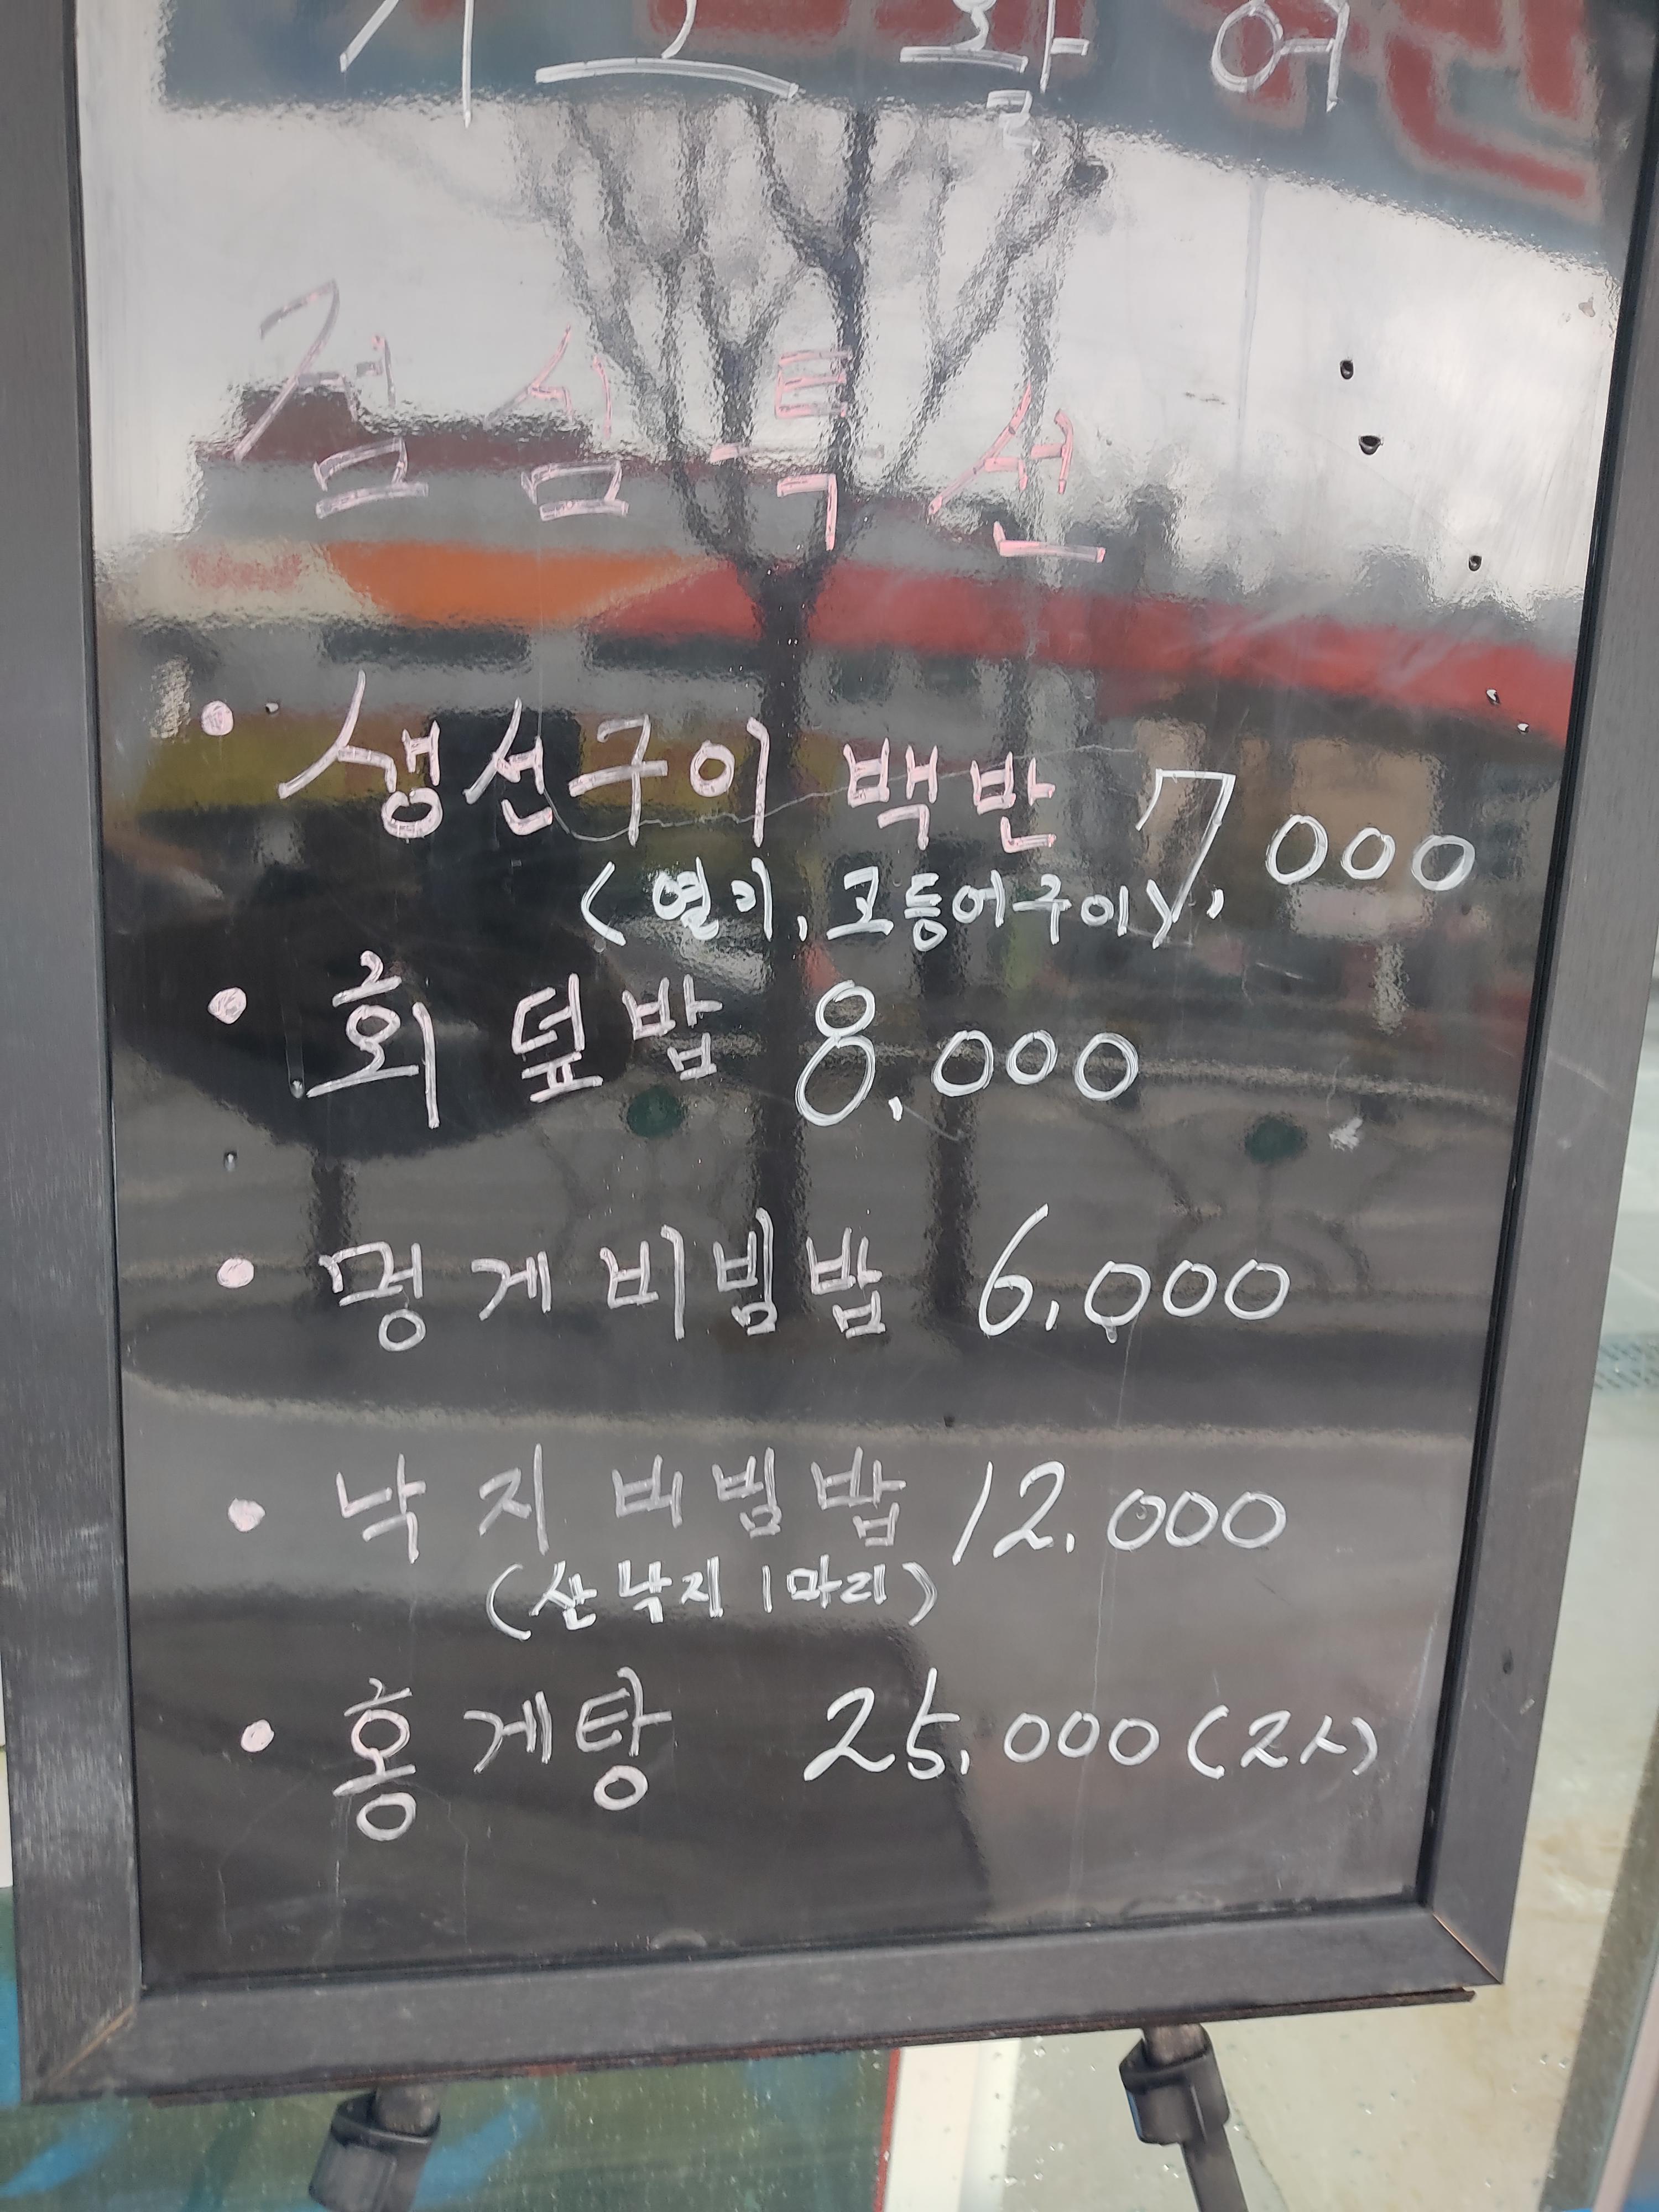 점심특선
• 생선구이 백반 7,000
(열기, 고등어구이)
• 회덮밥 8,000
• 멍게비빔밥 6,000
• 낙지비빔밥 12,000
(산낙지 1마리)
• 홍게탕 25,000 (2人)